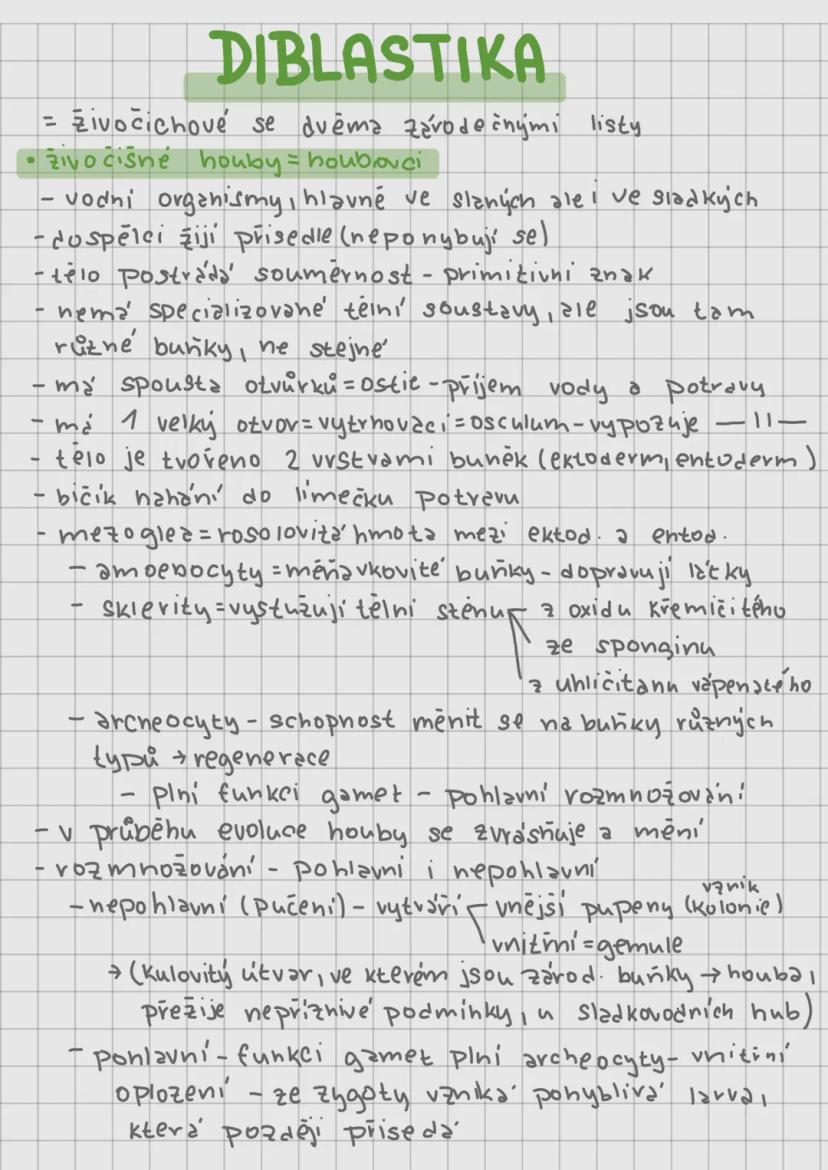 DIBLASTIKA
= živočichové se dvěma zárodečnými listy
• živočišné houby = houbovci
- vodní organismy, hlavně ve slaných ale i ve sladkých
- dospělci žijí přisedle (nepohybují se)
- tělo postrádá souměrnost - primitivní znak
- nemá specializované tělní soustavy, ale jsou tam
různé buňky, ne stejné
- má spousta otvůrků = ostie - příjem vody a potravy
- má 1 velký otvor = vytrhovací = osculum - vypozuje —11—
- tělo je tvořeno 2 vrstvami buněk (ektoderm, entoderm)
- bičík nahání do límečku potravu
- mezoglea = rosolovitá hmota mezi ektod. a entod.
- amoebocyty = měňavkovité buňky - dopravují látky
- sklerity = vystužují tělní stěnu - z oxidu křemičitého
ze sponginu
z uhličitanu vápenatého
- archeocyty - schopnost měnit se na buňky různých
typů → regenerace
- plní funkci gamet - pohlavní rozmnožování
- v průběhu evoluce houby se zvrásňuje a mění
- rozmnožování - pohlavní i nepohlavní
- nepohlavní (pučení) - vytváří vnější pupeny (vznik kolonie)
vnitřní = gemule
→ (kulovitý útvar, ve kterém jsou zárod. buňky → houba,
přežije nepříznivé podmínky, u sladkovodních hub)
- pohlavní - funkci gamet plní archeocyty - vnitřní
oplození - ze zygoty vzniká pohyblivá larva,
která později přisedá